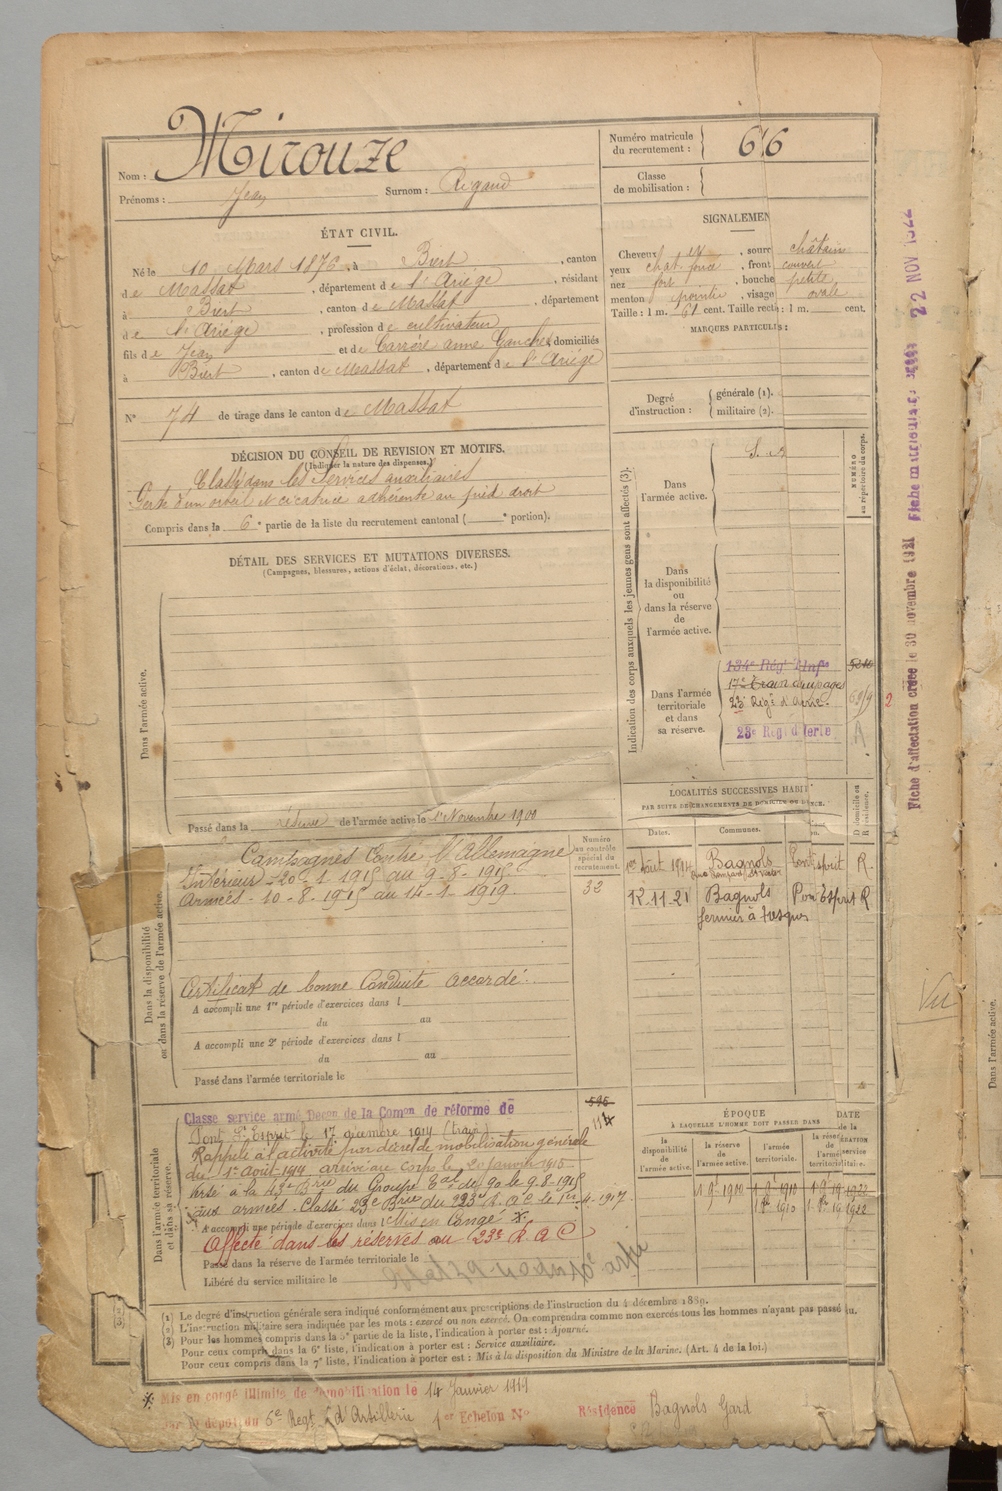 Nom : Mirouze
Prénoms : Jean Surnom : Rigaud
Numéro matricule du recrutement : 616
Classe de mobilisation :
ÉTAT CIVIL.
Né le 10 Mars 1876, à Biert, canton
de Massat, département de l'Ariège, résidant
à Biert, canton de Massat, département
de l'Ariège, profession de cultivateur
fils de Jean et de Carrère anne, domiciliés
à Biert, canton de Massat, département de l'Ariège
N° 74 de tirage dans le canton de Massat
SIGNALEMEN
Cheveux et, sourc châtain
yeux chat. foncé, front couvert
nez fort, bouche petite
menton pointu, visage ovale
Taille : 1 m. 61 cent. Taille recti : 1 m. cent.
MARQUES PARTICULIÈ :
Degré d'instruction : générale (1).
militaire (2).
DÉCISION DU CONSEIL DE REVISION ET MOTIFS.
(Indiquer la nature des dispenses.)
Classé dans les Services auxiliaires
Perte d'un orteil et cicatrice adhérente au pied droit
Compris dans la 6e partie de la liste du recrutement cantonal ( e portion).
DÉTAIL DES SERVICES ET MUTATIONS DIVERSES.
(Campagnes, blessures, actions d'éclat, décorations, etc.)
Dans l'armée active.
Passé dans la réserve de l'armée active le 1er Novembre 1900
Indication des corps auxquels les jeunes gens sont affectés (3).
NUMÉRO au répertoire du corps.
Dans l'armée active.
Dans la disponibilité ou dans la réserve de l'armée active.
Dans l'armée territoriale et dans sa réserve.
134e Régt d'Infie
17e Écon équipages
23e Régt d'Artie
23e Régt d'Artie
LOCALITÉS SUCCESSIVES HABIT
PAR SUITE DE CHANGEMENTS DE DOMICILE OU DE
Dates. Communes.
D domicile ou R résidence.
1er août 1914 Bagnols Pont Esprit R.
12.11.21 Bagnols Pon Esprit R
fermier à tresques
Numéro au contrôle spécial du recrutement.
32
Dans la disponibilité ou dans la réserve de l'armée active.
Campagnes Contre l'Allemagne
Intérieur - 20-1 1915 au 9-8-1915
Armées - 10-8-1915 au 14-1-1919
Certificat de bonne Conduite accordé.
A accompli une 1re période d'exercices dans l
du au
A accompli une 2e période d'exercices dans l
du au
Passé dans l'armée territoriale le
Dans l'armée territoriale et dans sa réserve.
Classé service armé Décon de la Comon de réforme de
Pont St Esprit le 17 décembre 1914 (train)
Rappelé à l'activité par décret de mobilisation générale
du 1er Août 1914 arrivé au corps le 20 Janvier 1915
à la 43e Brie du Groupe Eal de 90 le 9-8-1915
aux armées. Classé 23e Brie du 223e R.A.C le 1er 4. 1917.
A accompli une période d'exercices dans l Mis en Congé *.
Affecté dans les réserves au 23e R A C
Passé dans la réserve de l'armée territoriale le
Libéré du service militaire le
595
114
ÉPOQUE
À LAQUELLE L'HOMME DOIT PASSER DANS
DATE de la LIBÉRATION du service
la disponibilité de l'armée active.
la réserve de l'armée active.
l'armée territoriale.
(1) Le degré d'instruction générale sera indiqué conformément aux prescriptions de l'instruction du 4 décembre 1889.
(2) L'instruction militaire sera indiquée par les mots : exercé ou non exercé. On comprendra comme non exercés tous les hommes n'ayant pas passé au
(3) Pour les hommes compris dans la 5e partie de la liste, l'indication à porter est : Ajourné.
Pour ceux compris dans la 6e liste, l'indication à porter est : Service auxiliaire.
Pour ceux compris dans la 7e liste, l'indication à porter est : Mis à la disposition du Ministre de la Marine. (Art. 4 de la loi.)
* Mis en congé illimité de démobilisation le 14 Janvier 1919
par le dépôt du 6e Regt d'Artillerie 1er Echelon N° Résidence Bagnols Gard
Fiche d'affectation créée le 30 novembre 1921
Fiche matriculaire
22 NOV 1922
Vu
Dans l'armée active.